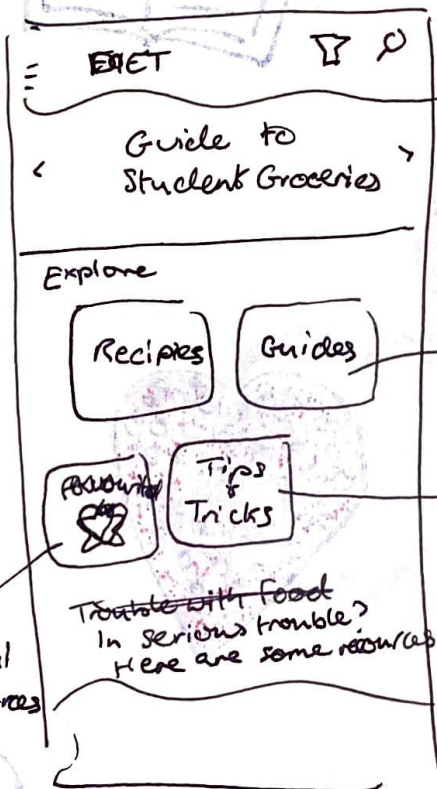 Guide to
Student Groceries
Explore
Recipies
Guides
Tips
&
Tricks
Trouble with Food
In serious trouble?
Here are some resources